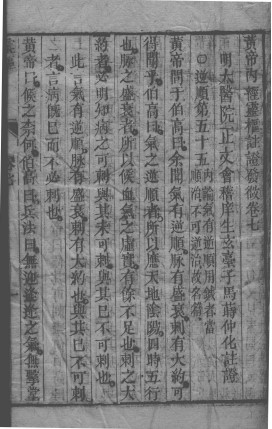 黃帝內經靈樞註證發微卷七
明太醫院正文會稽庠生玄臺子馬蒔仲化註證
○逆順第五十五
內論氣有逆順用鍼者當
順治不可逆治故名篇
黃帝問于伯高曰余聞氣有逆順脉有盛衰刺有大約可
得聞乎伯高曰氣之逆順者所以應天地陰陽四時五行
也脉之盛衰者所以候血氣之虛實有餘不足也刺之大
約者必明知病之可刺與其未可刺與其已不可刺也
此言氣有逆順脉有盛衰刺有大約也與其已不可刺
者言病旣已而不必刺也
黃帝曰候之柰何伯高曰兵法曰無迎逢逢之氣無擊堂